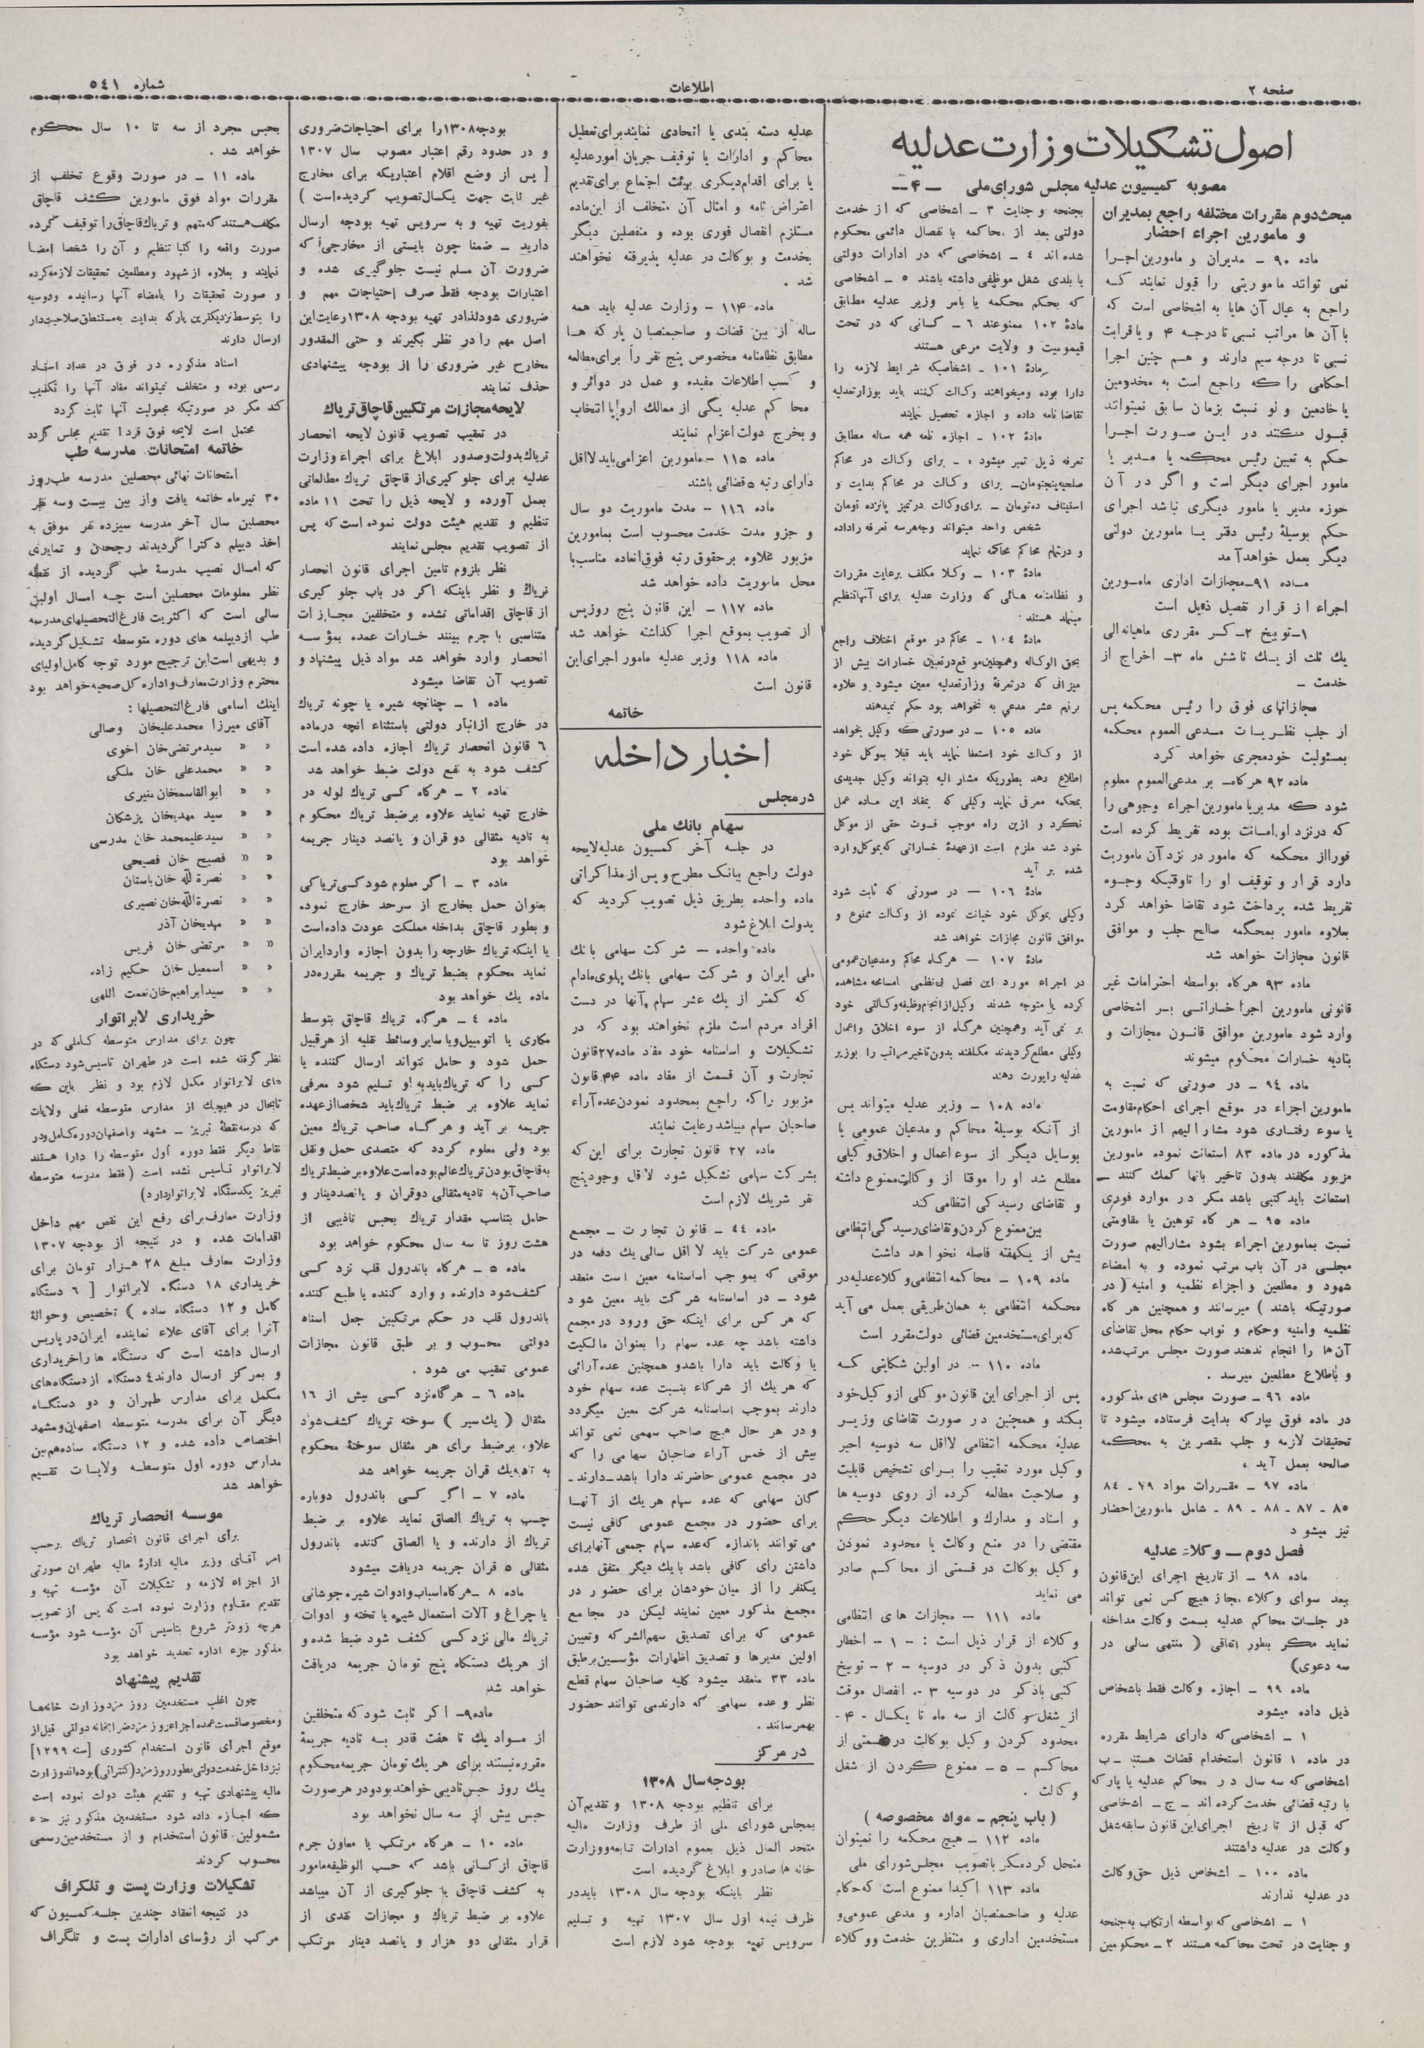 صفحه ۲
اطلاعات
شماره ۵۴۱
اصول تشکیلات وزارت عدلیه
مصوبه کمیسیون عدلیه مجلس شورای ملی — ۴ —
مبحث دوم مقررات مختلفه راجع بمدیران
و مامورین اجراء احضار
ماده ۹۰ - مدیران و مامورین اجرا
نمی تواند ماموریتی را قبول نمایند که
راجع به عیال آن هایا به اشخاصی است که
با آن ها مراتب نسبی تا درجه ۴ و یا قرابت
نسبی تا درجه سیم دارند و هم چنین اجرا
احکامی را که راجع است به مخدومین
یا خادمین و لو نسبت بزمان سابق نمیتواند
قبول میکنند در این صورت اجرا
حکم به تعیین رئیس محکمه یا مدیر یا
مامور اجرای دیگر است و اگر در آن
حوزه مدیر یا مامور دیگری نباشد اجرای
حکم بوسیلهٔ رئیس دفتر یا مامورین دولتی
دیگر بعمل خواهد آمد
ماده ۹۱ - مجازات اداری مامورین
اجراء از قرار تفصیل ذیل است
۱- توبیخ ۲- کسر مقرری ماهیانه الی
یك ثلث از یك تا شش ماه ۳- اخراج از
خدمت -
مجازاتهای فوق را رئیس محکمه پس
از جلب نظریات مدعی العموم محکمه
بمسئولیت خود مجری خواهد کرد
ماده ۹۲ هرگاه- بر مدعی العموم معلوم
شود که مدیر یا مامورین اجراء وجوهی را
که در نزد او امانت بوده تفریط کرده است
فوراً از محکمه که مامور در نزد آن ماموریت
دارد قرار و توقیف او را تا وقتیکه وجوه
تفریط شده پرداخت شود تقاضا خواهد کرد
بعلاوه مامور بمحکمه صالح جلب و موافق
قانون مجازات خواهد شد
ماده ۹۳ هرگاه بواسطه احترامات غیر
قانونی مامورین اجرا خساراتی بر اشخاصی
وارد شود مامورین موافق قانون مجازات و
بتادیه خسارات محکوم میشوند
ماده ۹۴ - در صورتی که نسبت به
مامورین اجراء در موقع اجرای احکام مقاومت
یا سوء رفتاری شود مشارالیهم از مامورین
مذکوره در ماده ۸۳ استعانت نموده مامورین
مزبور مکلفند بدون تاخیر بانها کمك کنند -
استعانت باید کتبی باشد مگر در موارد فوری
ماده ۹۵ - هر گاه توهین یا مقاومتی
نسبت بمامورین اجراء بشود مشارالیهم صورت
مجلسی در آن باب مرتب نموده و به امضاء
شهود و مطلعین و اجزاء نظمیه و امنیه ( در
صورتیکه باشند ) میرسانند و همچنین هر گاه
نظمیه و امنیه و حکام و نواب حکام محل تقاضای
آن ها را انجام ندهند صورت مجلس مرتب شده
و باطلاع مطلعین میرسد .
ماده ۹۶ - صورت مجلس های مذکوره
در ماده فوق بپارکه بدایت فرستاده میشود تا
تحقیقات لازمه و جلب مقصرین به محکمه
صالحه بعمل آید ،
ماده ۹۷ - مقررات مواد ۷۹ - ۸۴
۸۵ - ۸۷ - ۸۸ - ۸۹ - شامل مامورین احضار
نیز میشود
فصل دوم — وکلاء عدلیه
ماده ۹۸ - از تاریخ اجرای این قانون
بعد سوای وکلاء مجاز هیچ کس نمی تواند
در جلسات محاکم عدلیه بسمت وکالت مداخله
نماید مگر بطور اتفاقی ( منتهی سالی در
سه دعوی)
ماده ۹۹ - اجازه وکالت فقط باشخاص
ذیل داده میشود
۱ - اشخاصی که دارای شرایط مقرره
در ماده ۱ قانون استخدام قضات هستند - ب
اشخاصی که سه سال در محاکم عدلیه یا پارکه
با رتبه قضائی خدمت کرده اند - ج - اشخاصی
که قبل از تاریخ اجرای این قانون سابقه شغل
وکالت در عدلیه داشتند
ماده ۱۰۰ - اشخاص ذیل حق وکالت
در عدلیه ندارند
۱ - اشخاصی که بواسطه ارتکاب به جنحه
و جنایت در تحت محاکمه هستند ۲ - محکومین
بجنحه و جنایت ۳ - اشخاصی که از خدمت
دولتی بعد از محاکمه با نفصال دائمی محکوم
شده اند ۴ - اشخاصی که در ادارات دولتی
یا بلدی شغل موظفی داشته باشند ۵ - اشخاصی
که بحکم محکمه یا بامر وزیر عدلیه مطابق
مادهٔ ۱۰۲ ممنوعند ۶ - کسانی که در تحت
قیمومیت و ولایت مرعی هستند
مادهٔ ۱۰۱ - اشخاصیکه شرایط لازمه را
دارا بوده و میخواهند وکالت کنند باید بوزارت عدلیه
تقاضا نامه داده و اجازه تحصیل نمایند
ماده ۱۰۲ - اجازه نامه همه ساله مطابق
تعرفه ذیل تمبر میشود : - برای وکالت در محاکم
صلحیه پنجتومان - برای وکالت در محاکم بدایت و
استیناف ده تومان - برای وکالت در تمیز پانزده تومان
شخص واحد میتواند وجه هر سه تعرفه را داده
و در تمام محاکم محاکمه نماید
ماده ۱۰۳ - وکلا مکلف برعایت مقررات
و نظامنامه هائی که وزارت عدلیه برای آنها تنظیم
مینماید هستند .
مادهٔ ۱۰۴ - محاکم در موقع اختلاف راجع
بحق الوکاله و همچنین موقع در تعیین خسارات بیش از
میزانی که در تعرفهٔ وزارت عدلیه معین میشود و علاوه
برنیم عشر مدعی به نخواهد بود حکم نمیدهند
ماده ۱۰۵ - در صورتی که وکیل بخواهد
از وکالت خود استعفا نماید باید قبلا بموکل خود
اطلاع دهد بطوریکه مشار الیه بتواند وکیل جدیدی
بمحکمه معرفی نماید وکیلی که بمفاد این ماده عمل
نکرد و ازین راه موجب فوت حقی از موکل
خود شد ملزم است از عهدهٔ خساراتی که بموکل وارد
شده بر آید
مادهٔ ۱۰۶ — در صورتی که ثابت شود
وکیلی بموکل خود خیانت نموده از وکالت ممنوع و
موافق قانون مجازات خواهد شد
ماده ۱۰۷ - هرگاه محاکم و مدعیان عمومی
در اجراء مورد این فصل بی نظمی امسامحه مشاهده
کرده یا متوجه شدند وکیل از انجام وظیفه وکالتی خود
بر نمی آید و همچنین هرگاه از سوء اخلاق و اعمال
وکیلی مطلع گردیدند مکلفند بدون تاخیر مراتب را بوزیر
عدلیه راپورت دهند
ماده ۱۰۸ - وزیر عدلیه میتواند پس
از آنکه بوسیلهٔ محاکم و مدعیان عمومی یا
بوسایل دیگر از سوء اعمال و اخلاق وکیلی
مطلع شد او را موقتا از وکالت ممنوع داشته
و تقاضای رسیدگی انتظامی کند
بین ممنوع کردن و تقاضای رسیدگی انتظامی
بیش از یکهفته فاصله نخواهد داشت
ماده ۱۰۹ - محاکمه انتظامی وکلاء عدلیه در
محکمه انتظامی به همان طریقی بعمل می آید
که برای مستخدمین قضائی دولت مقرر است
ماده ۱۱۰ - در اولین شکایتی که
پس از اجرای این قانون موکلی از وکیل خود
بکند و همچنین در صورت تقاضای وزیر
عدلیه محکمه انتظامی لااقل سه دوسیه اخیر
وکیل مورد تعقیب را برای تشخیص قابلیت
و صلاحیت مطالعه کرده از روی دوسیه ها
و اسناد و مدارك و اطلاعات دیگر حکم
مقتضی را در منع وکالت یا محدود نمودن
وکیل بوکالت در قسمتی از محاکم صادر
می نماید
ماده ۱۱۱ — مجازات های انتظامی
وکلاء از قرار ذیل است : - ۱ - اخطار
کتبی بدون ذکر در دوسیه - ۲ - توبیخ
کتبی باذکر در دوسیه ۳ - انفصال موقت
از شغل وکالت از سه ماه تا یکسال - ۴ -
محدود کردن وکیل بوکالت در قسمتی از
محاکم - ۵ - ممنوع کردن از شغل
وکالت .
( باب پنجم - مواد مخصوصه )
ماده ۱۱۲ — هیچ محکمه را نمیتوان
منحل کرد مگر با تصویب مجلس شورای ملی
ماده ۱۱۳ اکیدا ممنوع است که حکام
عدلیه و صاحبمنصبان اداره و مدعی عمومی و
مستخدمین اداری و منتظرین خدمت و وکلاء
عدلیه دسته بندی یا اتحادی نمایند برای تعطیل
محاکم و ادارات یا توقیف جریان امور عدلیه
یا برای اقدام دیگری بهیئت اجتماع برای تقدیم
اعتراض نامه و امثال آن متخلف از این ماده
مستلزم انفصال فوری بوده و منفصلین دیگر
بخدمت و بوکالت در عدلیه پذیرفته نخواهند
شد .
ماده ۱۱۴ — وزارت عدلیه باید همه
ساله از بین قضات و صاحبمنصبان پارکه ها
مطابق نظامنامه مخصوص پنج نفر را برای مطالعه
و کسب اطلاعات مفیده و عمل در دوائر و
محاکم عدلیه یکی از ممالك اروپا انتخاب
و بخرج دولت اعزام نمایند
ماده ۱۱۵ - مامورین اعزامی باید لااقل
دارای رتبه ۵ قضائی باشند
ماده ۱۱۶ - مدت ماموریت دو سال
و جزو مدت خدمت محسوب است بمامورین
مزبور علاوه بر حقوق رتبه فوق العاده مناسب با
محل ماموریت داده خواهد شد
ماده ۱۱۷ - این قانون پنج روز پس
از تصویب بموقع اجرا گذاشته خواهد شد
ماده ۱۱۸ وزیر عدلیه مامور اجرای این
قانون است
خاتمه
اخبار داخله
در مجلس
سهام بانك ملی
در جلسه آخر کمسیون عدلیه لایحه
دولت راجع ببانک مطرح و پس از مذاکراتی
ماده واحده بطریق ذیل تصویب گردید که
بدولت ابلاغ شود
ماده واحده — شرکت سهامی بانك
ملی ایران و شرکت سهامی بانك پهلوی مادام
که کمتر از یك عشر سهام آنها در دست
افراد مردم است ملزم نخواهند بود که در
تشکیلات و اساسنامه خود مفاد ماده ۲۷ قانون
تجارت و آن قسمت از مفاد ماده ۴۴ قانون
مزبور را که راجع بمحدود نمودن عده آراء
صاحبان سهام میباشد رعایت نمایند
ماده ۲۷ قانون تجارت برای این که
بشرکت سهامی تشکیل شود لااقل وجود پنج
نفر شریك لازم است
ماده ۴۴ - قانون تجارت - مجمع
عمومی شرکت باید لااقل سالی یك دفعه در
موقعی که بموجب اساسنامه معین است منعقد
شود - در اساسنامه شرکت باید معین شود
که هر کس برای اینکه حق ورود در مجمع
داشته باشد چه عده سهام را بعنوان مالکیت
یا وکالت باید دارا باشد و همچنین عده آرائی
که هر یك از شرکاء بنسبت عده سهام خود
دارند بموجب اساسنامه شرکت معین میگردد
و در هر حال هیچ صاحب سهمی نمی تواند
بیش از خمس آراء صاحبان سهامی را که
در مجمع عمومی حاضرند دارا باشد - دارند -
گان سهامی که عده سهام هر یك از آنها
برای حضور در مجمع عمومی کافی نیست
می توانند باندازه که عده سهام جمعی آنها برای
داشتن رأی کافی باشد با یك دیگر متفق شده
یکنفر را از میان خودشان برای حضور در
مجمع مذکور معین نمایند لیکن در مجامع
عمومی که برای تصدیق سهم الشرکه و تعیین
اولین مدیرها و تصدیق اظهارات مؤسسین بر طبق
ماده ۳۳ منعقد میشود کلیه صاحبان سهام قطع
نظر و عده سهامی که دارند می توانند حضور
بهمرسانند .
در مرکز
بودجه سال ۱۳۰۸
برای تنظیم بودجه ۱۳۰۸ و تقدیم آن
بمجلس شورای ملی از طرف وزارت مالیه
متحد المال ذیل بعموم ادارات تابعه و وزارت
خانه ها صادر و ابلاغ گردیده است
نظر باینکه بودجه سال ۱۳۰۸ باید در
ظرف نیمه اول سال ۱۳۰۷ تهیه و تسلیم
سرویس تهیه بودجه شود لازم است
بودجه ۱۳۰۸ را برای احتیاجات ضروری
و در حدود رقم اعتبار مصوب سال ۱۳۰۷
[ پس از وضع اقلام اعتباریکه برای مخارج
غیر ثابت جهت یکسال تصویب گردیده است )
بفوریت تهیه و به سرویس تهیه بودجه ارسال
دارید - ضمنا چون بایستی از مخارجی که
ضرورت آن مسلم نیست جلوگیری شده و
اعتبارات بودجه فقط صرف احتیاجات مهم و
ضروری شود لذا در تهیه بودجه ۱۳۰۸ رعایت این
اصل مهم را در نظر بگیرند و حتی المقدور
مخارج غیر ضروری را از بودجه پیشنهادی
حذف نمایند
لایحه مجازات مرتکبین قاچاق تریاك
در تعقیب تصویب قانون لایحه انحصار
تریاك بدولت و صدور ابلاغ برای اجراء وزارت
عدلیه برای جلوگیری از قاچاق تریاك مطالعاتی
بعمل آورده و لایحه ذیل را تحت ۱۱ ماده
تنظیم و تقدیم هیئت دولت نموده است که پس
از تصویب تقدیم مجلس نمایند
نظر بلزوم تامین اجرای قانون انحصار
تریاك و نظر باینکه اگر در باب جلوگیری
از قاچاق اقداماتی نشده و متخلفین مجازات
متناسبی با جرم ببینند خسارات عمده بمؤسسه
انحصار وارد خواهد شد مواد ذیل پیشنهاد و
تصویب آن تقاضا میشود
ماده ۱ - چنانچه شیره یا چونه تریاك
در خارج از انبار دولتی باستثناء انچه در ماده
۶ قانون انحصار تریاك اجازه داده شده است
کشف شود به نفع دولت ضبط خواهد شد
ماده ۲ - هرگاه کسی تریاك لوله در
خارج تهیه نماید علاوه بر ضبط تریاك محکوم
به تادیه مثقالی دو قران و پانصد دینار جریمه
خواهد بود
ماده ۳ - اگر معلوم شود کسی تریاکی
بعنوان حمل بخارج از سرحد خارج نموده
و بطور قاچاق بداخله مملکت عودت داده است
یا اینکه تریاك خارجه را بدون اجازه وارد ایران
نماید محکوم بضبط تریاك و جریمه مقرره در
ماده یك خواهد بود
ماده ۴ - هرگاه تریاك قاچاق بتوسط
مکاری یا اتومبیل و یا سایر وسائط نقلیه از هر قبیل
حمل شود و حامل نتواند ارسال کننده یا
کسی را که تریاك باید به او تسلیم شود معرفی
نماید علاوه بر ضبط تریاك باید شخصا از عهده
جریمه بر آید و هرگاه صاحب تریاك معین
بود ولی معلوم گردد که متصدی حمل و نقل
به قاچاق بودن تریاك عالم بوده است علاوه بر ضبط تریاك
صاحب آن به تادیه مثقالی دو قران و پانصد دینار و
حامل بتناسب مقدار تریاك بحبس تادیبی از
هشت روز تا سه سال محکوم خواهد بود
ماده ۵ - هرگاه باندرول قلب نزد کسی
کشف شود دارنده و وارد کننده یا طبع کننده
باندرول قلب در حکم مرتکبین جعل اسناد
دولتی محسوب و بر طبق قانون مجازات
عمومی تعقیب می شود .
ماده ۶ - هرگاه نزد کسی بیش از ۱۶
مثقال ( یك سیر ) سوخته تریاك کشف شود
علاوه بر ضبط برای هر مثقال سوختهٔ محکوم
به تادیه یك قران جریمه خواهد شد
ماده ۷ - اگر کسی باندرول دوباره
چسب به تریاك الصاق نماید علاوه بر ضبط
تریاك از دارنده و یا الصاق کننده باندرول
مثقالی ۵ قران جریمه دریافت میشود
ماده ۸ - هرگاه اسباب و ادوات شیره جوشانی
یا چراغ و آلات استعمال شیره یا تخته و ادوات
تریاك مالی نزد کسی کشف شود ضبط شده و
از هر یك دستگاه پنج تومان جریمه دریافت
خواهد شد
ماده ۹ - اگر ثابت شود که متخلفین
از مواد یك تا هفت قادر به تادیه جریمهٔ
مقرره نیستند برای هر یك تومان جریمه محکوم
یك روز حبس تادیبی خواهند بود و در هر صورت
حبس بیش از سه سال نخواهد بود
ماده ۱۰ - هرگاه مرتکب یا معاون جرم
قاچاق از کسانی باشد که حسب الوظیفه مامور
به کشف قاچاق یا جلوگیری از آن میباشد
علاوه بر ضبط تریاك و مجازات نقدی از
قرار مثقالی دو هزار و پانصد دینار مرتکب
بحبس مجرد از سه تا ۱۰ سال محکوم
خواهد شد .
ماده ۱۱ - در صورت وقوع تخلف از
مقررات مواد فوق مامورین کشف قاچاق
مکلف هستند که متهم و تریاك قاچاق را توقیف کرده
صورت واقعه را کتبا تنظیم و آن را شخصا امضا
نمایند و بعلاوه از شهود و مطلعین تحقیقات لازمه کرده
و صورت تحقیقات را بامضاء آنها رسانیده و دوسیه
را بتوسط نزدیکترین پارکه بدایت به مستنطق صلاحیت دار
ارسال دارند
اسناد مذکوره در فوق در عداد اسناد
رسمی بوده و متخلف نمیتواند مفاد آنها را تکذیب
کند مگر در صورتیکه مجعولیت آنها ثابت گردد
محتمل است لایحه فوق فردا تقدیم مجلس گردد
خاتمه امتحانات مدرسه طب
امتحانات نهائی محصلین مدرسه طب روز
۳۰ تیرماه خاتمه یافت و از بین بیست و سه نفر
محصلین سال آخر مدرسه سیزده نفر موفق به
اخذ دیپلم دکترا گردیدند رجحان و تمایزی
که امسال نصیب مدرسهٔ طب گردیده از نقطه
نظر معلومات محصلین است چه امسال اولین
سالی است که اکثریت فارغ التحصیلهای مدرسه
طب از دیپلمه های دوره متوسطه تشکیل گردیده
و بدیهی است این ترجیح مورد توجه کامل اولیای
محترم وزارت معارف و اداره کل صحیه خواهد بود
اینك اسامی فارغ التحصیلها :
آقای میرزا محمد علیخان وصالی
« « سید مرتضی خان اخوی
« « محمد علی خان ملکی
« « ابوالقاسمخان منیری
« « سید مهدیخان پزشکان
« « سید علیمحمد خان مدرسی
« « فصیح خان فصیحی
« « نصرة الله خان باستان
« « نصرة الله خان نصیری
« « مهدیخان آذر
« « مرتضی خان فریس
« « اسمعیل خان حکیم زاده
« « سید ابراهیم خان نعمت اللهی
خریداری لابراتوار
چون برای مدارس متوسطه کاملی که در
نظر گرفته شده است در طهران تاسیس شود دستگاه
های لابراتوار مکمل لازم بود و نظر باین که
تابحال در هیچیك از مدارس متوسطه فعلی ولایات
که در سه نقطهٔ تبریز - مشهد و اصفهان دوره کامل و در
نقاط دیگر فقط دوره اول متوسطه را دارا هستند
لابراتوار تاسیس نشده است ( فقط مدرسه متوسطه
تبریز یکدستگاه لابراتوار دارد)
وزارت معارف برای رفع این نقص مهم داخل
اقدامات شده و در نتیجه از بودجه ۱۳۰۷
وزارت معارف مبلغ ۲۸ هزار تومان برای
خریداری ۱۸ دستگاه لابراتوار [ ۶ دستگاه
کامل و ۱۲ دستگاه ساده ) تخصیص و حوالهٔ
آنرا برای آقای علاء نماینده ایران در پاریس
ارسال داشته است که دستگاه ها را خریداری
و بمرکز ارسال دارند ۴ دستگاه از دستگاه های
مکمل برای مدارس طهران و دو دستگاه
دیگر آن برای مدرسه متوسطه اصفهان و مشهد
اختصاص داده شده و ۱۲ دستگاه ساده هم بین
مدارس دوره اول متوسطه ولایات تقسیم
خواهد شد
موسسه انحصار تریاك
برای اجرای قانون انحصار تریاك برحسب
امر آقای وزیر مالیه ادارهٔ مالیه طهران صورتی
از اجزاء لازمه و تشکیلات آن مؤسسه تهیه و
تقدیم مقام وزارت نموده است که پس از تصویب
هرچه زودتر شروع بتاسیس آن مؤسسه شود مؤسسه
مذکور جزء اداره تحدید خواهد بود
تقدیم پیشنهاد
چون اغلب مستخدمین روز مزد وزارت خانه ها
و مخصوصا قسمت عمده اجزاء روز مزد ضرابخانه دولتی قبل از
موقع اجرای قانون استخدام کشوری [سنه ۱۲۹۹]
نیز داخل خدمت دولتی بطور روز مزد (کنتراتی) بوده اند وزارت
مالیه پیشنهادی تهیه و تقدیم هیئت دولت نموده است
که اجازه داده شود مستخدمین مذکور نیز جزء
مشمولین قانون استخدام و از مستخدمین رسمی
محسوب گردند
تشکیلات وزارت پست و تلگراف
در نتیجه انعقاد چندین جلسه کمسیون که
مرکب از رؤسای ادارات پست و تلگراف